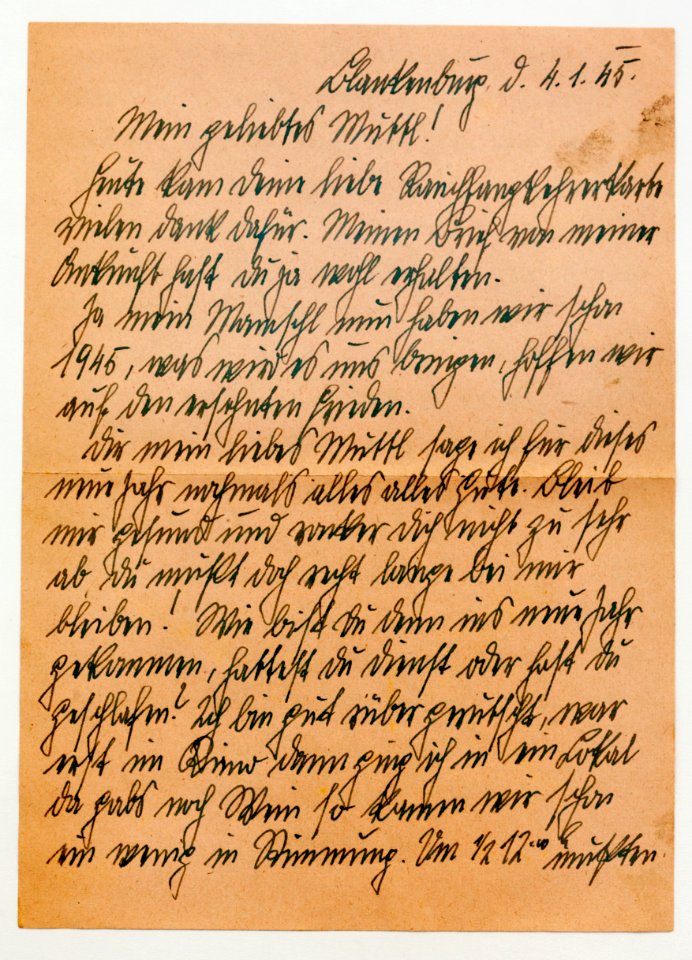 Blankenburg, d. 4.1.45.
Mein geliebtes Muttl!
Heute kam deine liebe Rauchfangkehrerkarte
vielen dank dafür. Meinen Brief von meiner
Ankunft hast du ja wohl erhalten.
Ja mein Mamschl nun haben wir schon
1945, was wird es uns bringen, hoffen wir
auf den ersehnten Frieden.
Dir mein liebes Muttl sage ich für dieses
neue Jahr nochmals alles alles Gute. Bleib
mir gesund und racker dich nicht zu sehr
ab, du mußt doch recht lange bei mir
bleiben! Wie bist du denn ins neue Jahr
gekommen, hattest du dienst oder hast du
geschlafen? Ich bin gut rüber gerutscht, war
erst im Kino dann ging ich in ein Lokal
da gabs noch Wein so kamen wir schon
ein wenig in Stimmung. Um 1/2 12.00 mußten